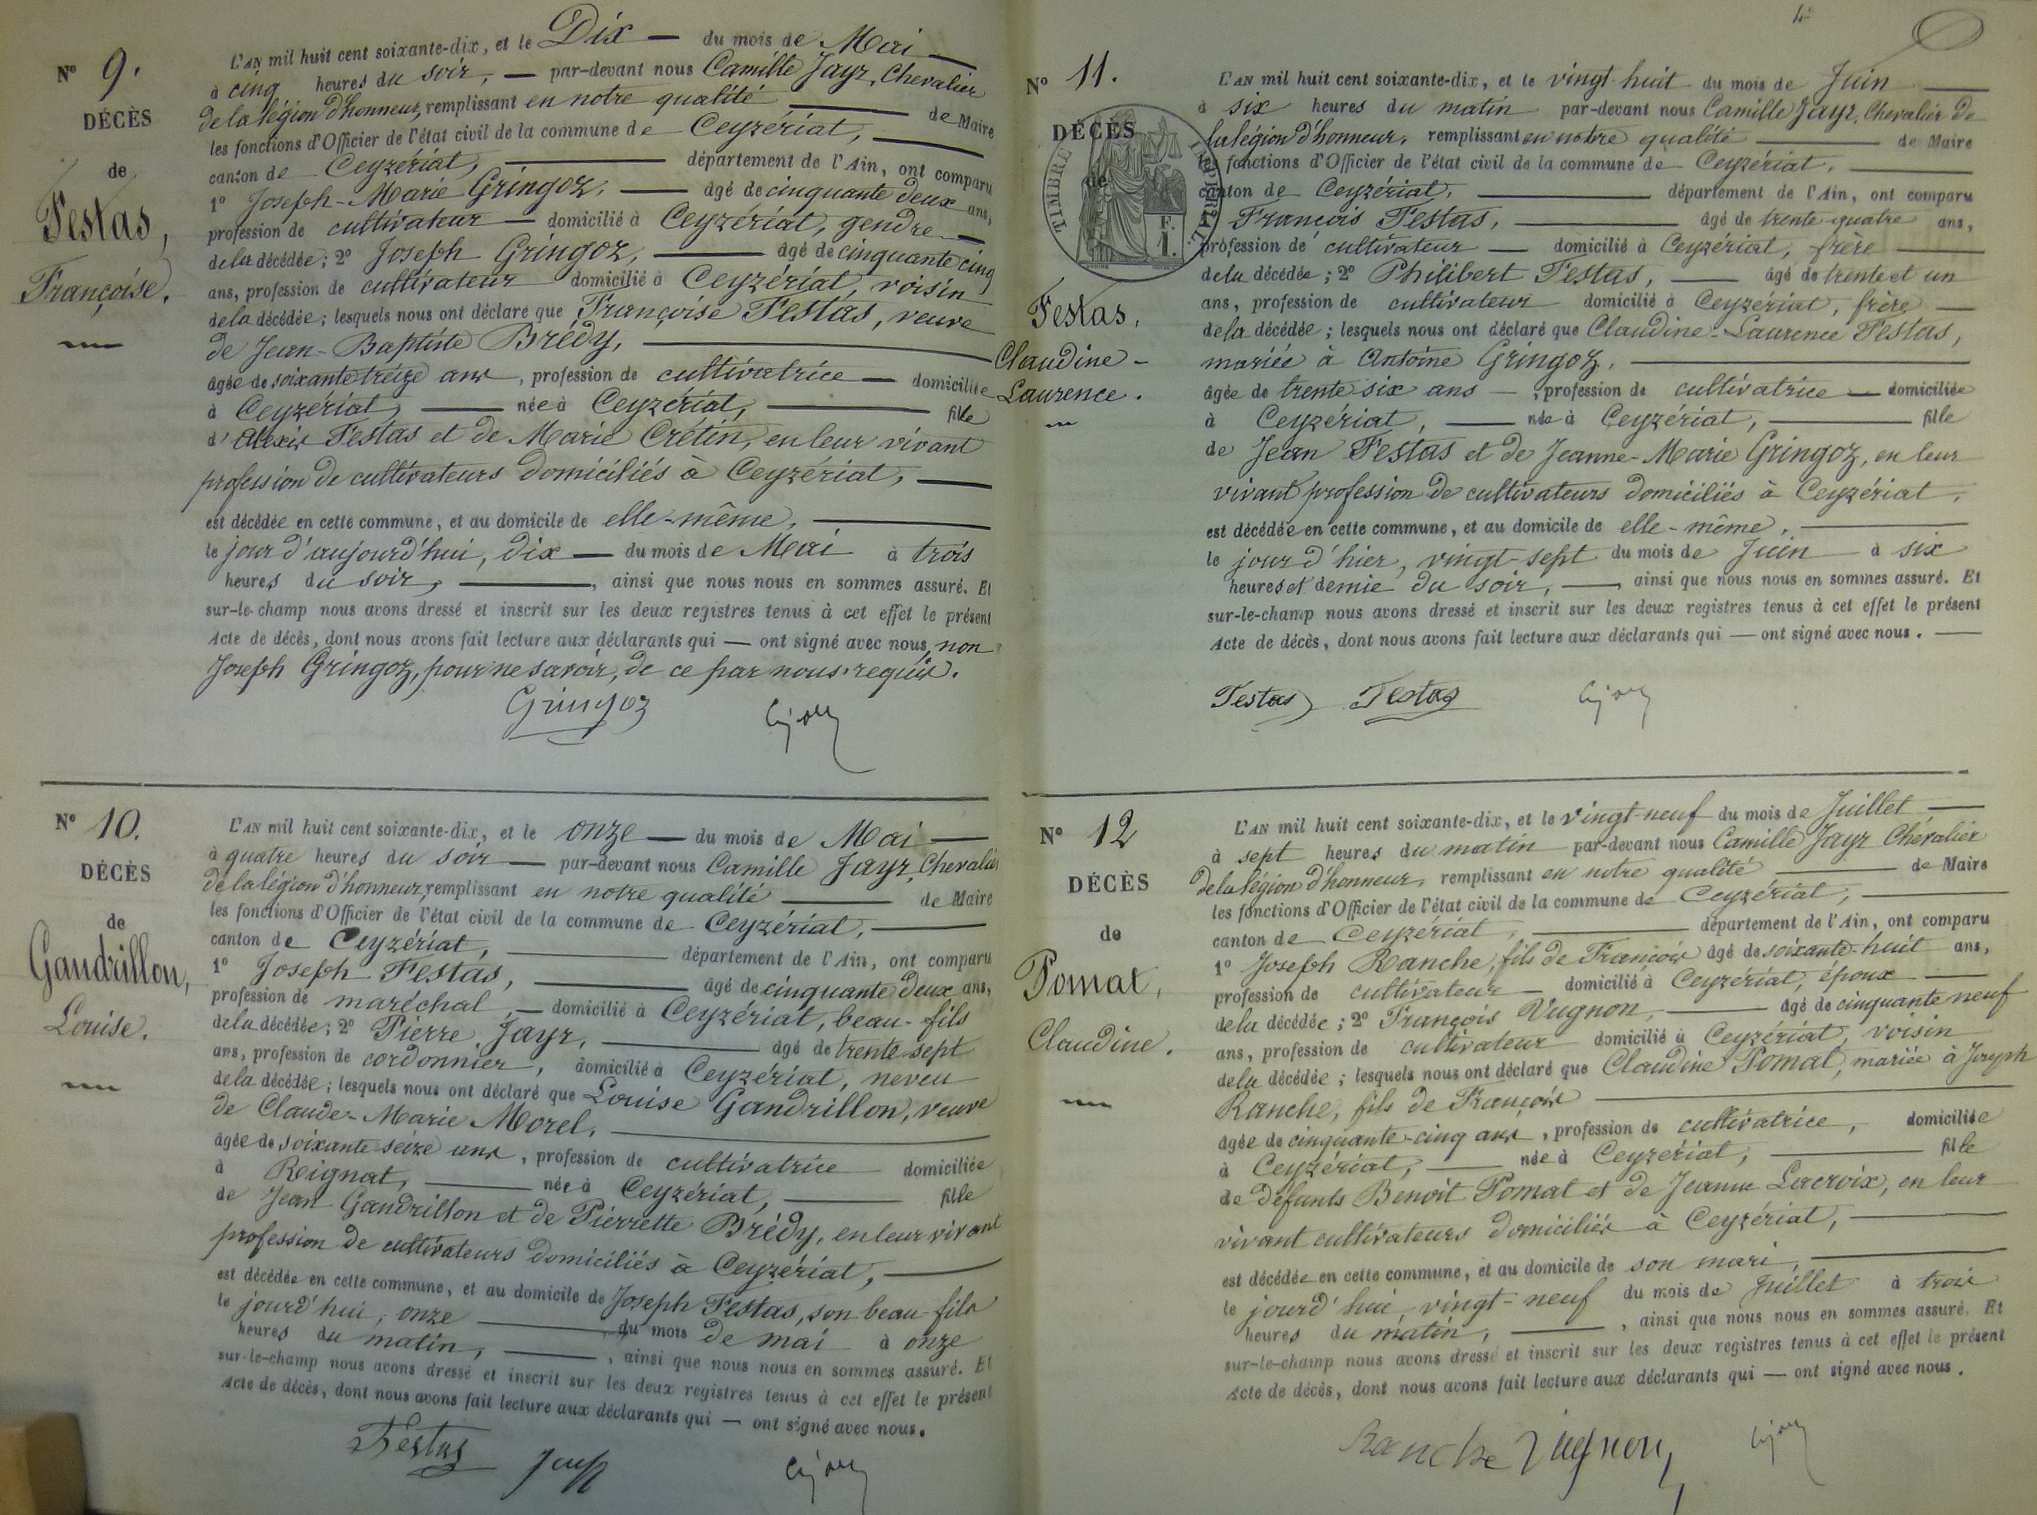 N° 9.
DÉCÈS
de
Festas,
Françoise.
L'AN mil huit cent soixante-dix, et le Dix du mois de Mai
à cinq heures du soir, par-devant nous Camille Jayr, Chevalier
de la légion d'honneur, remplissant en notre qualité de Maire
les fonctions d'Officier de l'état civil de la commune de Ceyzériat,
canton de Ceyzériat, département de l'Ain, ont comparu
1° Joseph-Marie Gringoz, âgé de cinquante deux ans,
profession de cultivateur domicilié à Ceyzériat, gendre
de la décédée; 2° Joseph Gringoz, âgé de cinquante cinq
ans, profession de cultivateur domicilié à Ceyzériat, voisin
de la décédée; lesquels nous ont déclaré que Françoise Festas, veuve
de Jean-Baptiste Brédy,
âgée de soixante treize ans, profession de cultivatrice domiciliée
à Ceyzériat, née à Ceyzériat, fille
d'Alexis Festas et de Marie Crétin, en leur vivant
profession de cultivateurs domiciliés à Ceyzériat,
est décédée en cette commune, et au domicile de elle-même,
le jour d'aujourd'hui, dix du mois de Mai à trois
heures du soir, ainsi que nous nous en sommes assuré. Et
sur-le-champ nous avons dressé et inscrit sur les deux registres tenus à cet effet le présent
Acte de décès, dont nous avons fait lecture aux déclarants qui — ont signé avec nous, non
Joseph Gringoz, pour ne savoir, de ce par nous requis.
Gringoz
N° 10.
DÉCÈS
de
Gandrillon,
Louise.
L'AN mil huit cent soixante-dix, et le onze du mois de Mai
à quatre heures du soir par-devant nous Camille Jayr, Chevalier
de la légion d'honneur, remplissant en notre qualité de Maire
les fonctions d'Officier de l'état civil de la commune de Ceyzériat,
canton de Ceyzériat, département de l'Ain, ont comparu
1° Joseph Festas, âgé de cinquante deux ans,
profession de maréchal, domicilié à Ceyzériat, beau-fils
de la décédée; 2° Pierre Jayr, âgé de trente sept
ans, profession de cordonnier, domicilié à Ceyzériat, neveu
de la décédée; lesquels nous ont déclaré que Louise Gandrillon, veuve
de Claude-Marie Morel,
âgée de soixante seize ans, profession de cultivatrice domiciliée
à Reignat, née à Ceyzériat, fille
de Jean Gandrillon et de Pierrette Brédy, en leur vivant
profession de cultivateurs domiciliés à Ceyzériat,
est décédée en cette commune, et au domicile de Joseph Festas, son beau-fils
le jourd'hui, onze du mois de mai à onze
heures du matin, ainsi que nous nous en sommes assuré. Et
sur-le-champ nous avons dressé et inscrit sur les deux registres tenus à cet effet le présent
Acte de décès, dont nous avons fait lecture aux déclarants qui — ont signé avec nous.
Festas Jayr
N° 11.
DÉCÈS
de
TIMBRE IMPÉRIAL
F.
1.
Festas,
Claudine-
Laurence.
L'AN mil huit cent soixante-dix, et le vingt-huit du mois de Juin
à six heures du matin par-devant nous Camille Jayr, Chevalier de
la légion d'honneur, remplissant en notre qualité de Maire
les fonctions d'Officier de l'état civil de la commune de Ceyzériat,
canton de Ceyzériat, département de l'Ain, ont comparu
François Festas, âgé de trente-quatre ans,
profession de cultivateur domicilié à Ceyzériat, frère
de la décédée; 2° Philibert Festas, âgé de trente et un
ans, profession de cultivateur domicilié à Ceyzériat, frère
de la décédée; lesquels nous ont déclaré que Claudine-Laurence Festas,
mariée à Antoine Gringoz,
âgée de trente six ans, profession de cultivatrice domiciliée
à Ceyzériat, née à Ceyzériat, fille
de Jean Festas et de Jeanne-Marie Gringoz, en leur
vivant profession de cultivateurs domiciliés à Ceyzériat,
est décédée en cette commune, et au domicile de elle-même,
le jour d'hier, vingt-sept du mois de Juin à six
heures et demie du soir, ainsi que nous nous en sommes assuré. Et
sur-le-champ nous avons dressé et inscrit sur les deux registres tenus à cet effet le présent
Acte de décès, dont nous avons fait lecture aux déclarants qui — ont signé avec nous.
Festas Festas
N° 12
DÉCÈS
de
Pomat,
Claudine.
L'AN mil huit cent soixante-dix, et le vingt-neuf du mois de Juillet
à sept heures du matin par-devant nous Camille Jayr Chevalier
de la légion d'honneur, remplissant en notre qualité de Maire
les fonctions d'Officier de l'état civil de la commune de Ceyzériat,
canton de Ceyzériat, département de l'Ain, ont comparu
1° Joseph Ranche, fils de François âgé de soixante-huit ans,
profession de cultivateur domicilié à Ceyzériat, époux
de la décédée; 2° François Vugnon, âgé de cinquante neuf
ans, profession de cultivateur domicilié à Ceyzériat, voisin
de la décédée; lesquels nous ont déclaré que Claudine Pomat, mariée à Joseph
Ranche, fils de François
âgée de cinquante-cinq ans, profession de cultivatrice, domiciliée
à Ceyzériat, née à Ceyzériat, fille
de défunts Benoit Pomat et de Jeanne Lacroix, en leur
vivant cultivateurs domiciliés à Ceyzériat,
est décédée en cette commune, et au domicile de son mari,
le jourd'hui vingt-neuf du mois de Juillet à trois
heures du matin, ainsi que nous nous en sommes assuré. Et
sur-le-champ nous avons dressé et inscrit sur les deux registres tenus à cet effet le présent
Acte de décès, dont nous avons fait lecture aux déclarants qui — ont signé avec nous.
Ranche Vugnon